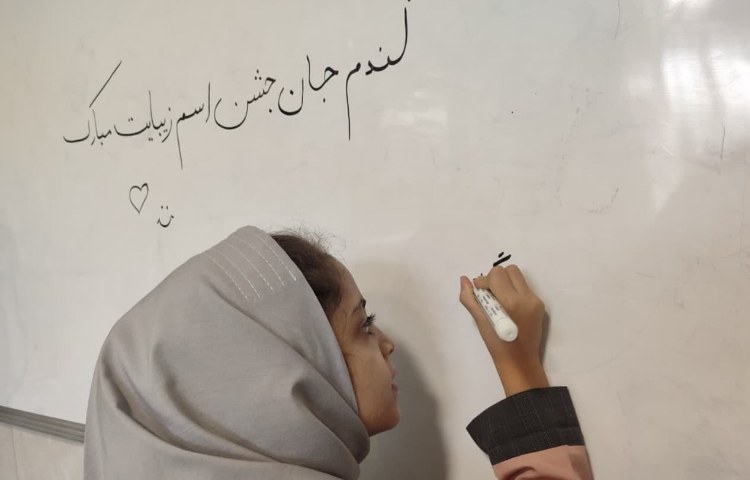 گندم جان جشن اسم زیبایت مبارک